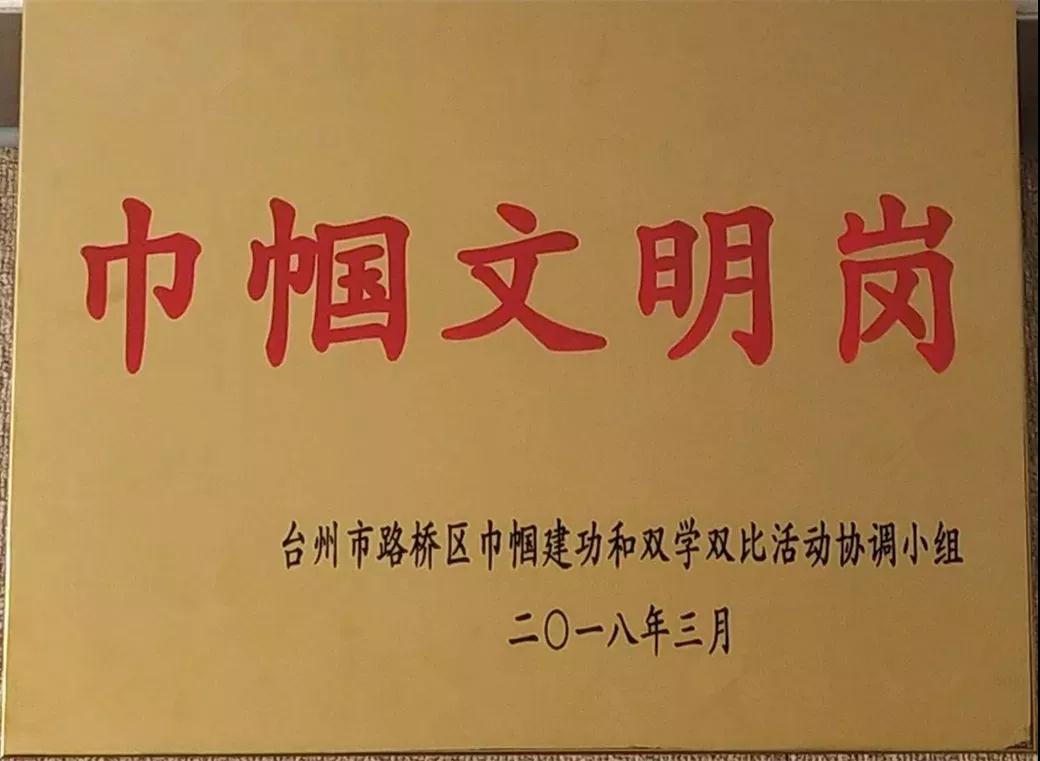 巾帼文明岗
台州市路桥区巾帼建功和双学双比活动协调小组
二〇一八年三月